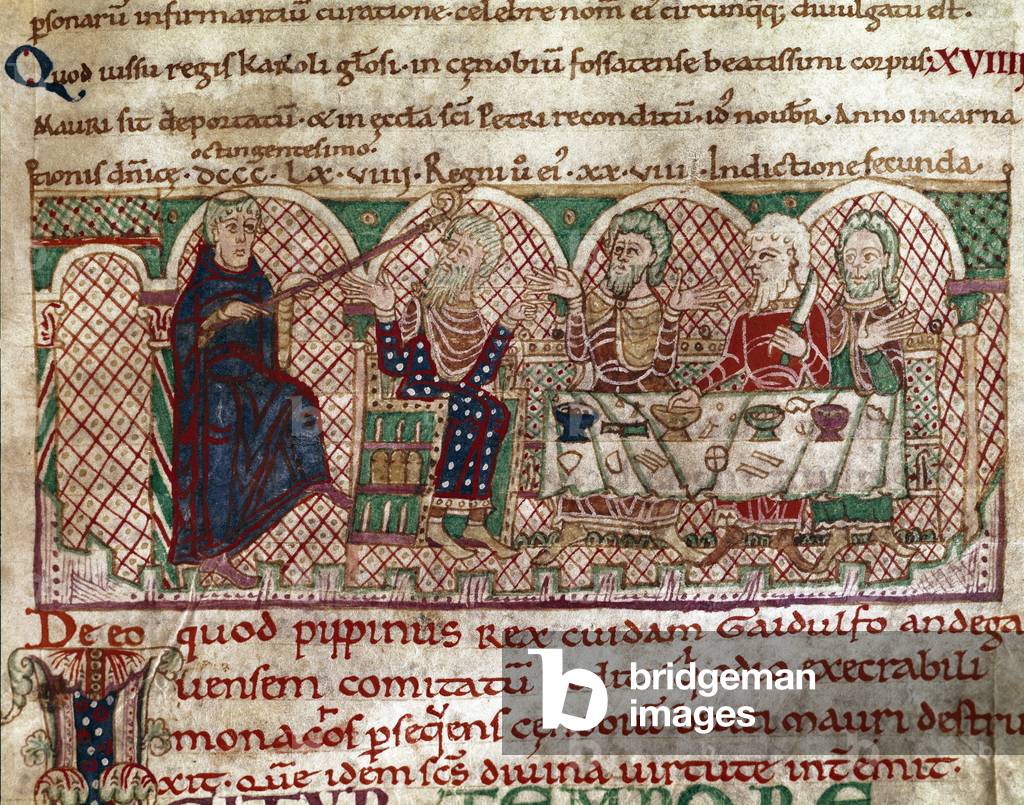 psonarū infirmantiū curatione celebre nom̄ ei circunq̄q; diuulgatū est.
Quod iussu regis Karoli gl̄osi in cęnobiū fossatense beatissimi corpus; XVIIII
Mauri sit deportatū & in ęccl̄a sc̄i Petri reconditū idꝰ noub̄r. Anno incarna
octingentesimo.
tionis dn̄icę. dccc. Lx. viiii. Regni ů eiꝰ. xx. viii. Indictione secunda.
De eo quod pippinus Rex cuidam Gaidulfo andega
uensem comitatū execrabili
monachos ꝑseq̄ens cęnobiū mauri destru
xit. Quē idem sc̄s diuina uirtute intēmit.
TEMPORE
b bridgeman
images